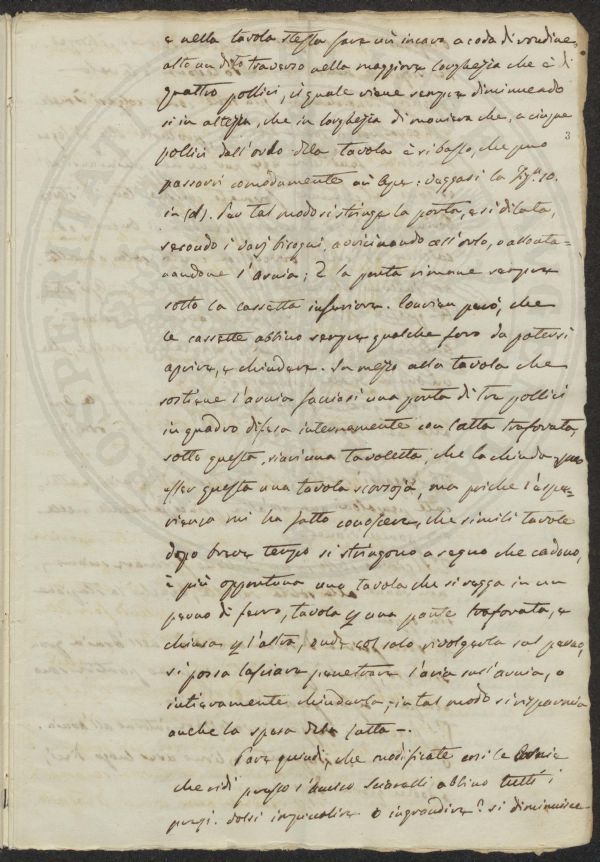 e nella tavola stessa fare un incavo a coda di rondine,
alto un dito traverso nella maggiore larghezza che è di
quattro pollici, il quale viene sempre diminuendo
si in altezza, che in larghezza di maniera che, a cinque
3
pollici dall'orlo della tavola è si basso, che può
passarvi comodamente un'Ape: veggasi la Fig.ª 10.
in (d). Per tal modo si stringe la porta, e si dilata,
secondo i varj bisogni, avvicinando all'orlo, o allonta-
nandone l'arnia; E la porta rimane sempre
sotto la cassetta inferiore. Convien però, che
le cassette abbino sempre qualche foro da potersi
aprire, e chiudere. In mezzo alla tavola che
sostiene l'arnia facciasi una porta di tre pollici
in quadro difesa internamente con latta traforata,
sotto questa, siavi una tavoletta, che la chiuda
esser questa una tavola scorsoja, ma poiche l'espe-
rienza mi ha fatto conoscere, che simili tavole
dopo breve tempo si stringono a segno che cadono,
è più opportuna una tavola che si regga in un
perno di ferro, tavola p una parte traforata, e
chiusa p l'altra, onde col solo rivolgerla sul perno,
si possa lasciare penetrare l'aria sull'arnia, o
intieramente chiuderla; in tal modo si risparmia
anche la spesa della latta –.
Pare quindi, che modificate così le Arnie
che vidi presso l'Amico Sciaralli abbino tutti i
pregi. Volsi impicciolire o ingrandire? si diminuisce